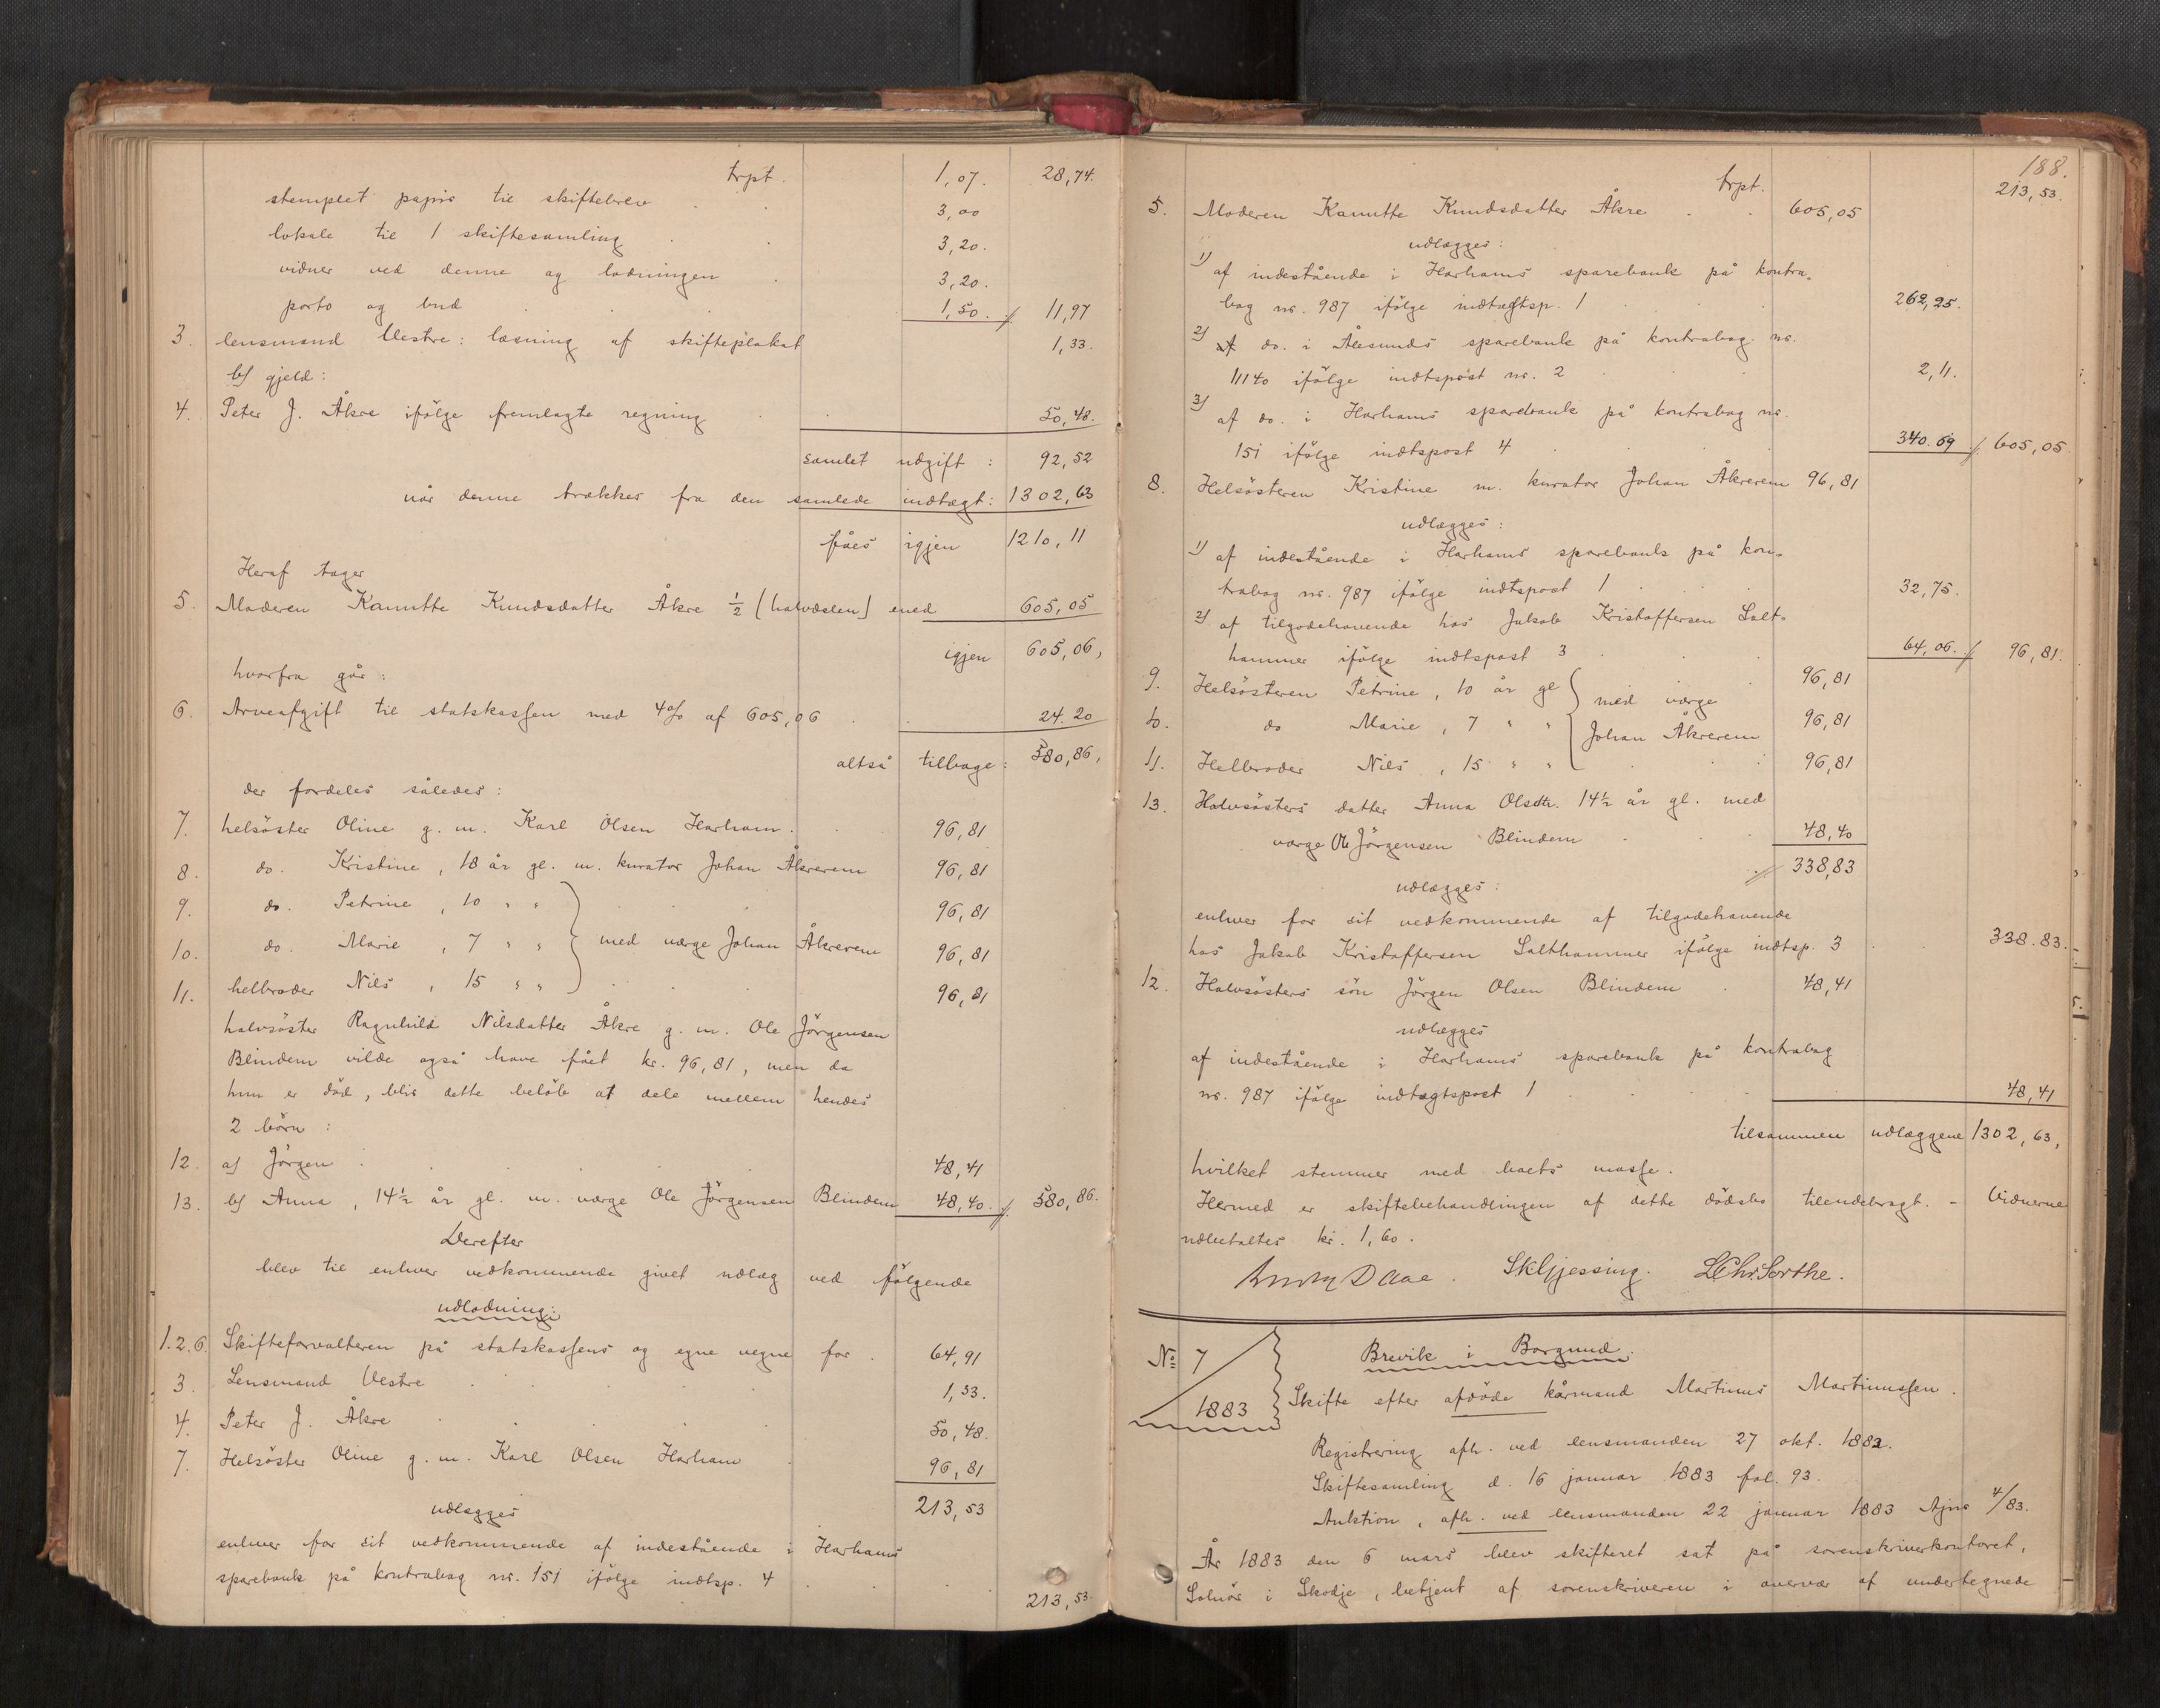 trpt. 1,07. 28,74.
stemplet papir til skiftebrev 3,00
lokale til 1 skiftesamling 3,20.
vidner ved denne og lodningen 3,20.
porto og bud 1,50. // 11,97
3. lensmand Vestre: læsning af skifteplakat 1,33.
b) gjeld:
4. Peter J. Åkre ifölge fremlagte regning 50,48.
samlet udgift: 92,52
når denne trækkes fra den samlede indtægt: 1302,63
fåes igjen 1210,11
Heraf tager
5. Moderen Kanutte Knudsdatter Åkre ½ (halvdelen) med 605,05
igjen 605,06,
hvorfra går:
6. Arveafgift til statskassen med 4% af 605,06 24.20
altså tilbage: 580,86,
der fordeles således:
7. helsöster Oline g. m. Karl Olsen Harham. 96,81
8. do. Kristine, 18 år gl. m. kurator Johan Åkrerem 96,81
9. do. Petrine, 10 " " 96,81
10. do. Marie, 7 " " } med værge Johan Åkrerem 96,81
11. helbroder Nils, 15 " " 96,81
halvsöster Ragnhild Nilsdatter Åkre g. m. Ole Jörgensen
Blindem vilde også have fået kr. 96,81, men da
hun er död, blir dette belöb at dele mellem hendes
2 börn:
12. a) Jörgen 48,41
13. b) Anna, 14½ år gl. m. værge Ole Jörgensen Blindem 48,40. // 580,86.
Derefter
blev til enhver vedkommende givet udlæg ved fölgende
udlodning:
1.2.6. Skifteforvalteren på statskassens og egne vegne for 64,91
3. Lensmand Vestre 1,33.
4. Peter J. Åkre 50,48.
7. Helsöster Oline g. m. Karl Olsen Harham 96,81
213,53
udlægges
enhver for sit vedkommende af indestående i Harhams
sparebank på kontrabog nr. 151 ifölge indtsp. 4
213,53.
188.
trpt. 213,53.
5. Moderen Kanutte Knudsdatter Åkre 605,05
udlægges:
1) af indestående i Harhams sparebank på kontra-
bog nr. 987 ifölge indtægtsp. 1 262,25.
2) af do. i Ålesunds sparebank på kontrabog nr.
11140 ifölge indtspost nr. 2 2,11.
3) af do. i Harhams sparebank på kontrabog nr.
151 ifölge indtspost 4 340.69 // 605,05
8. Helsösteren Kristine m. kurator Johan Åkrerem 96,81
udlægges:
1) af indestående i Harhams sparebank på kon-
trabog nr. 987 ifölge indtspost 1 32,75.
2) af tilgodehavende hos Jakob Kristoffersen Salt-
hammer ifölge indtspost 3 64,06. // 96,81.
9. Helsösteren Petrine, 10 år gl } med værge 96,81
10. do Marie, 7 " " } Johan Åkrerem 96,81
11. Helbroder Nils, 15 " " 96,81
13. Halvsösters datter Anna Olsdtr. 14½ år gl. med
værge Ole Jörgensen Blindem 48,40
// 338,83
udlægges:
enhver for sit vedkommende af tilgodehavende
hos Jakob Kristoffersen Salthammer ifölge indtsp. 3 338.83.
12. Halvsösters sön Jörgen Olsen Blindem 48,41
udlægges
af indestående i Harhams sparebank på kontrabog
nr. 987 ifölge indtægtspost 1 48,41
tilsammen udlæggene 1302,63,
hvilket stemmer med boets masse.
Hermed er skiftebehandlingen af dette dödsbo tilendebragt. – Vidnerne
udbetaltes kr. 1,60.
Daae. SKGjessing. LChr.Sorthe.
No 7
1883
Brevik i Borgund.
Skifte efter afdöde kårmand Martinus Martinussen.
Registrering afh. ved lensmanden 27 okt. 1882.
Skiftesamling d. 16 januar 1883 fol. 93.
Auktion, afh. ved lensmanden 22 januar 1883 Ajnr 4/83.
År 1883 den 6 mars blev skifteret sat på sorenskriverkontoret,
Solnör i Skodje, betjent af sorenskriveren i overvær af undertegnede